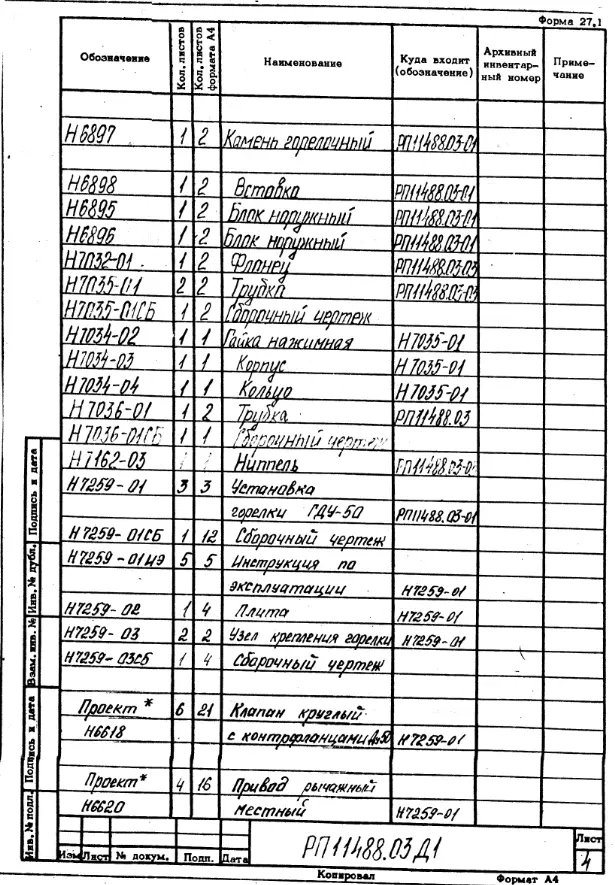 Форма 27.1
Обозначение Кол. листов Кол. листов формата А4 Наименование Куда входит (обозначение) Архивный инвентарный номер Примечание
Н6897 1 2 Камень горелочный РП11488.03-01
Н6898 1 2 Вставка РП11488.03-01
Н6895 1 2 Блок наружный РП11488.03-01
Н6896 1 2 Блок наружный РП11488.03-01
Н7032-01 1 2 Фланец РП11488.03-03
Н7035-01 2 2 Трубка РП11488.03-03
Н7035-01СБ 1 2 Сборочный чертеж
Н7034-02 1 1 Гайка нажимная Н7035-01
Н7034-03 1 1 Корпус Н7035-01
Н7034-04 1 1 Кольцо Н7035-01
Н7036-01 1 2 Трубка РП11488.03
Н7036-01СБ 1 1 Сборочный чертеж
Н7162-03 1 1 Ниппель
Н7259-01 3 3 Установка
горелки ГДУ-50 РП11488.03-01
Н7259-01СБ 1 12 Сборочный чертеж
Н7259-01ИЭ 5 5 Инструкция по
эксплуатации Н7259-01
Н7259-02 1 4 Плита Н7259-01
Н7259-03 2 2 Узел крепления горелки Н7259-01
Н7259-03СБ 1 4 Сборочный чертеж
Проект* 6 21 Клапан круглый
Н6618 с контрфланцами Ду50 Н7259-01
Проект* 4 16 Привод рычажный
Н6620 местный Н7259-01
Подпись и дата
Инв. № дубл.
Взам. инв. №
Подпись и дата
Инв. № подл.
Изм Лист № докум. Подп. Дата
РП11488.03Д1
Лист
4
Копировал Формат А4